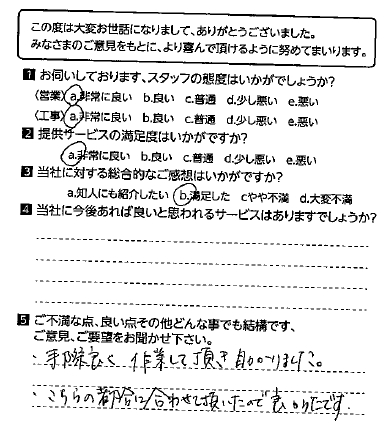 この度は大変お世話になりまして、ありがとうございました。
みなさまのご意見をもとに、より喜んで頂けるように努めてまいります。
1 お伺いしております、スタッフの態度はいかがでしょうか?
(営業) a.非常に良い b.良い c.普通 d.少し悪い e.悪い
(工事) a.非常に良い b.良い c.普通 d.少し悪い e.悪い
2 提供サービスの満足度はいかがですか?
a.非常に良い b.良い c.普通 d.少し悪い e.悪い
3 当社に対する総合的なご感想はいかがですか?
a.知人にも紹介したい b.満足した cやや不満 d.大変不満
4 当社に今後あれば良いと思われるサービスはありますでしょうか?
5 ご不満な点、良い点その他どんな事でも結構です、
ご意見、ご要望をお聞かせ下さい。
・手際良く 作業して頂き助かりました。
・こちらの都合に合わせて頂いたので良かったです